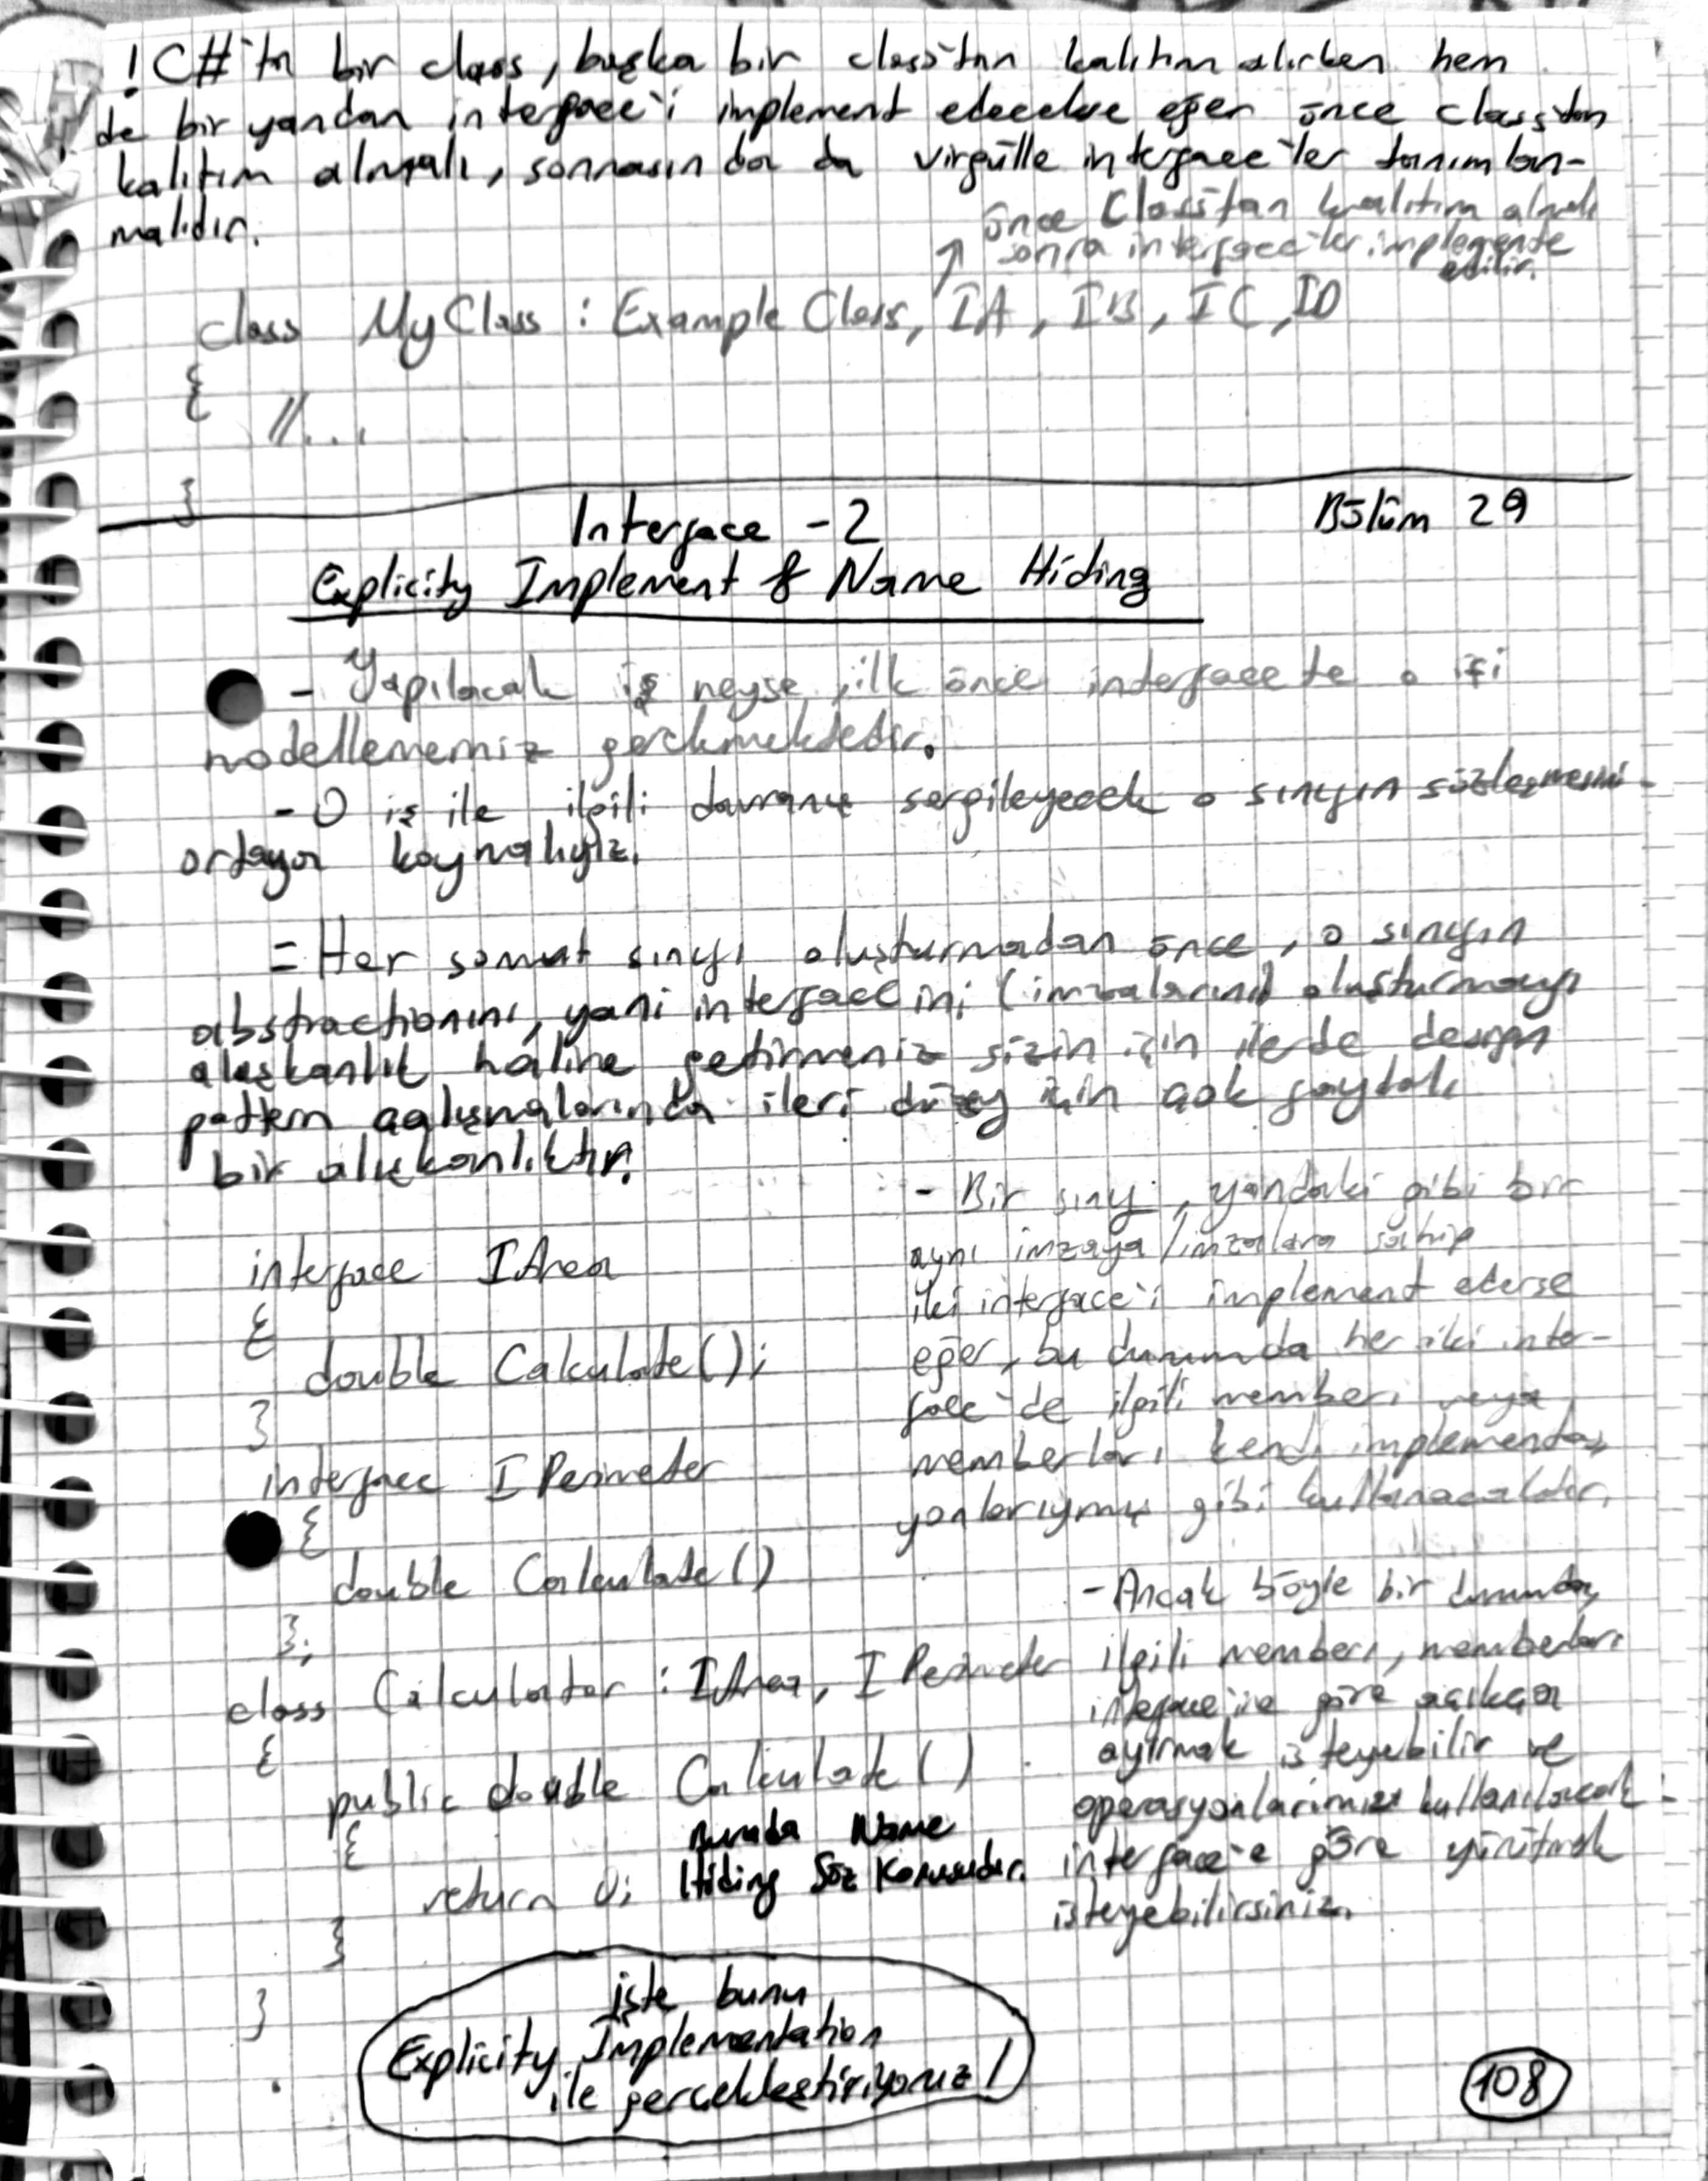 ! C#'ta bir class, başka bir class'tan kalıtım alırken hem
de bir yandan interface'i implement edecekse eğer önce class'tan
kalıtım almalı, sonrasında da virgülle interface'ler tanımlan-
malıdır.
önce Class'tan kalıtım almalı
sonra interface'ler implemente
edilir.
class MyClass : Example Class, IA, IB, IC, ID
{
//...
}
Interface - 2
Bölüm 29
Explicity Implement & Name Hiding
- Yapılacak iş neyse, ilk önce interface te o işi
modellememiz gerekmektedir.
- O iş ile ilgili davranış sergileyecek o sınıfın sözleşmesini
ortaya koymalıyız.
= Her somut sınıfı oluşturmadan önce, o sınıfın
abstractionını, yani interface ini (imzalarını) oluşturmayı
alışkanlık haline getirmeniz sizin için ilerde design
pattern çalışmalarında ileri düzey için çok faydalı
bir alışkanlıktır!
interface IArea
{
double Calculate();
}
interface IPerimeter
{
double Calculate()
};
class Calculator : IArea, IPerimeter
{
public double Calculate()
{
return 0;
Burada Name
Hiding Söz Konusudur.
}
}
- Bir sınıf, yandaki gibi bir
aynı imzaya/imzalara sahip
iki interface'i implement ederse
eğer, bu durumda her iki inter-
face'de ilgili memberı veya
memberları kendi implementas
yonlarıymış gibi kullanacaktır.
- Ancak böyle bir durumda,
ilgili memberı, memberları
interface'ine göre açıkça
ayırmak isteyebilir ve
operasyonlarımızı kullanılacak
interface'e göre yürütmek
isteyebilirsiniz.
işte bunu
Explicity Implementation
ile gerçekleştiriyoruz!
108